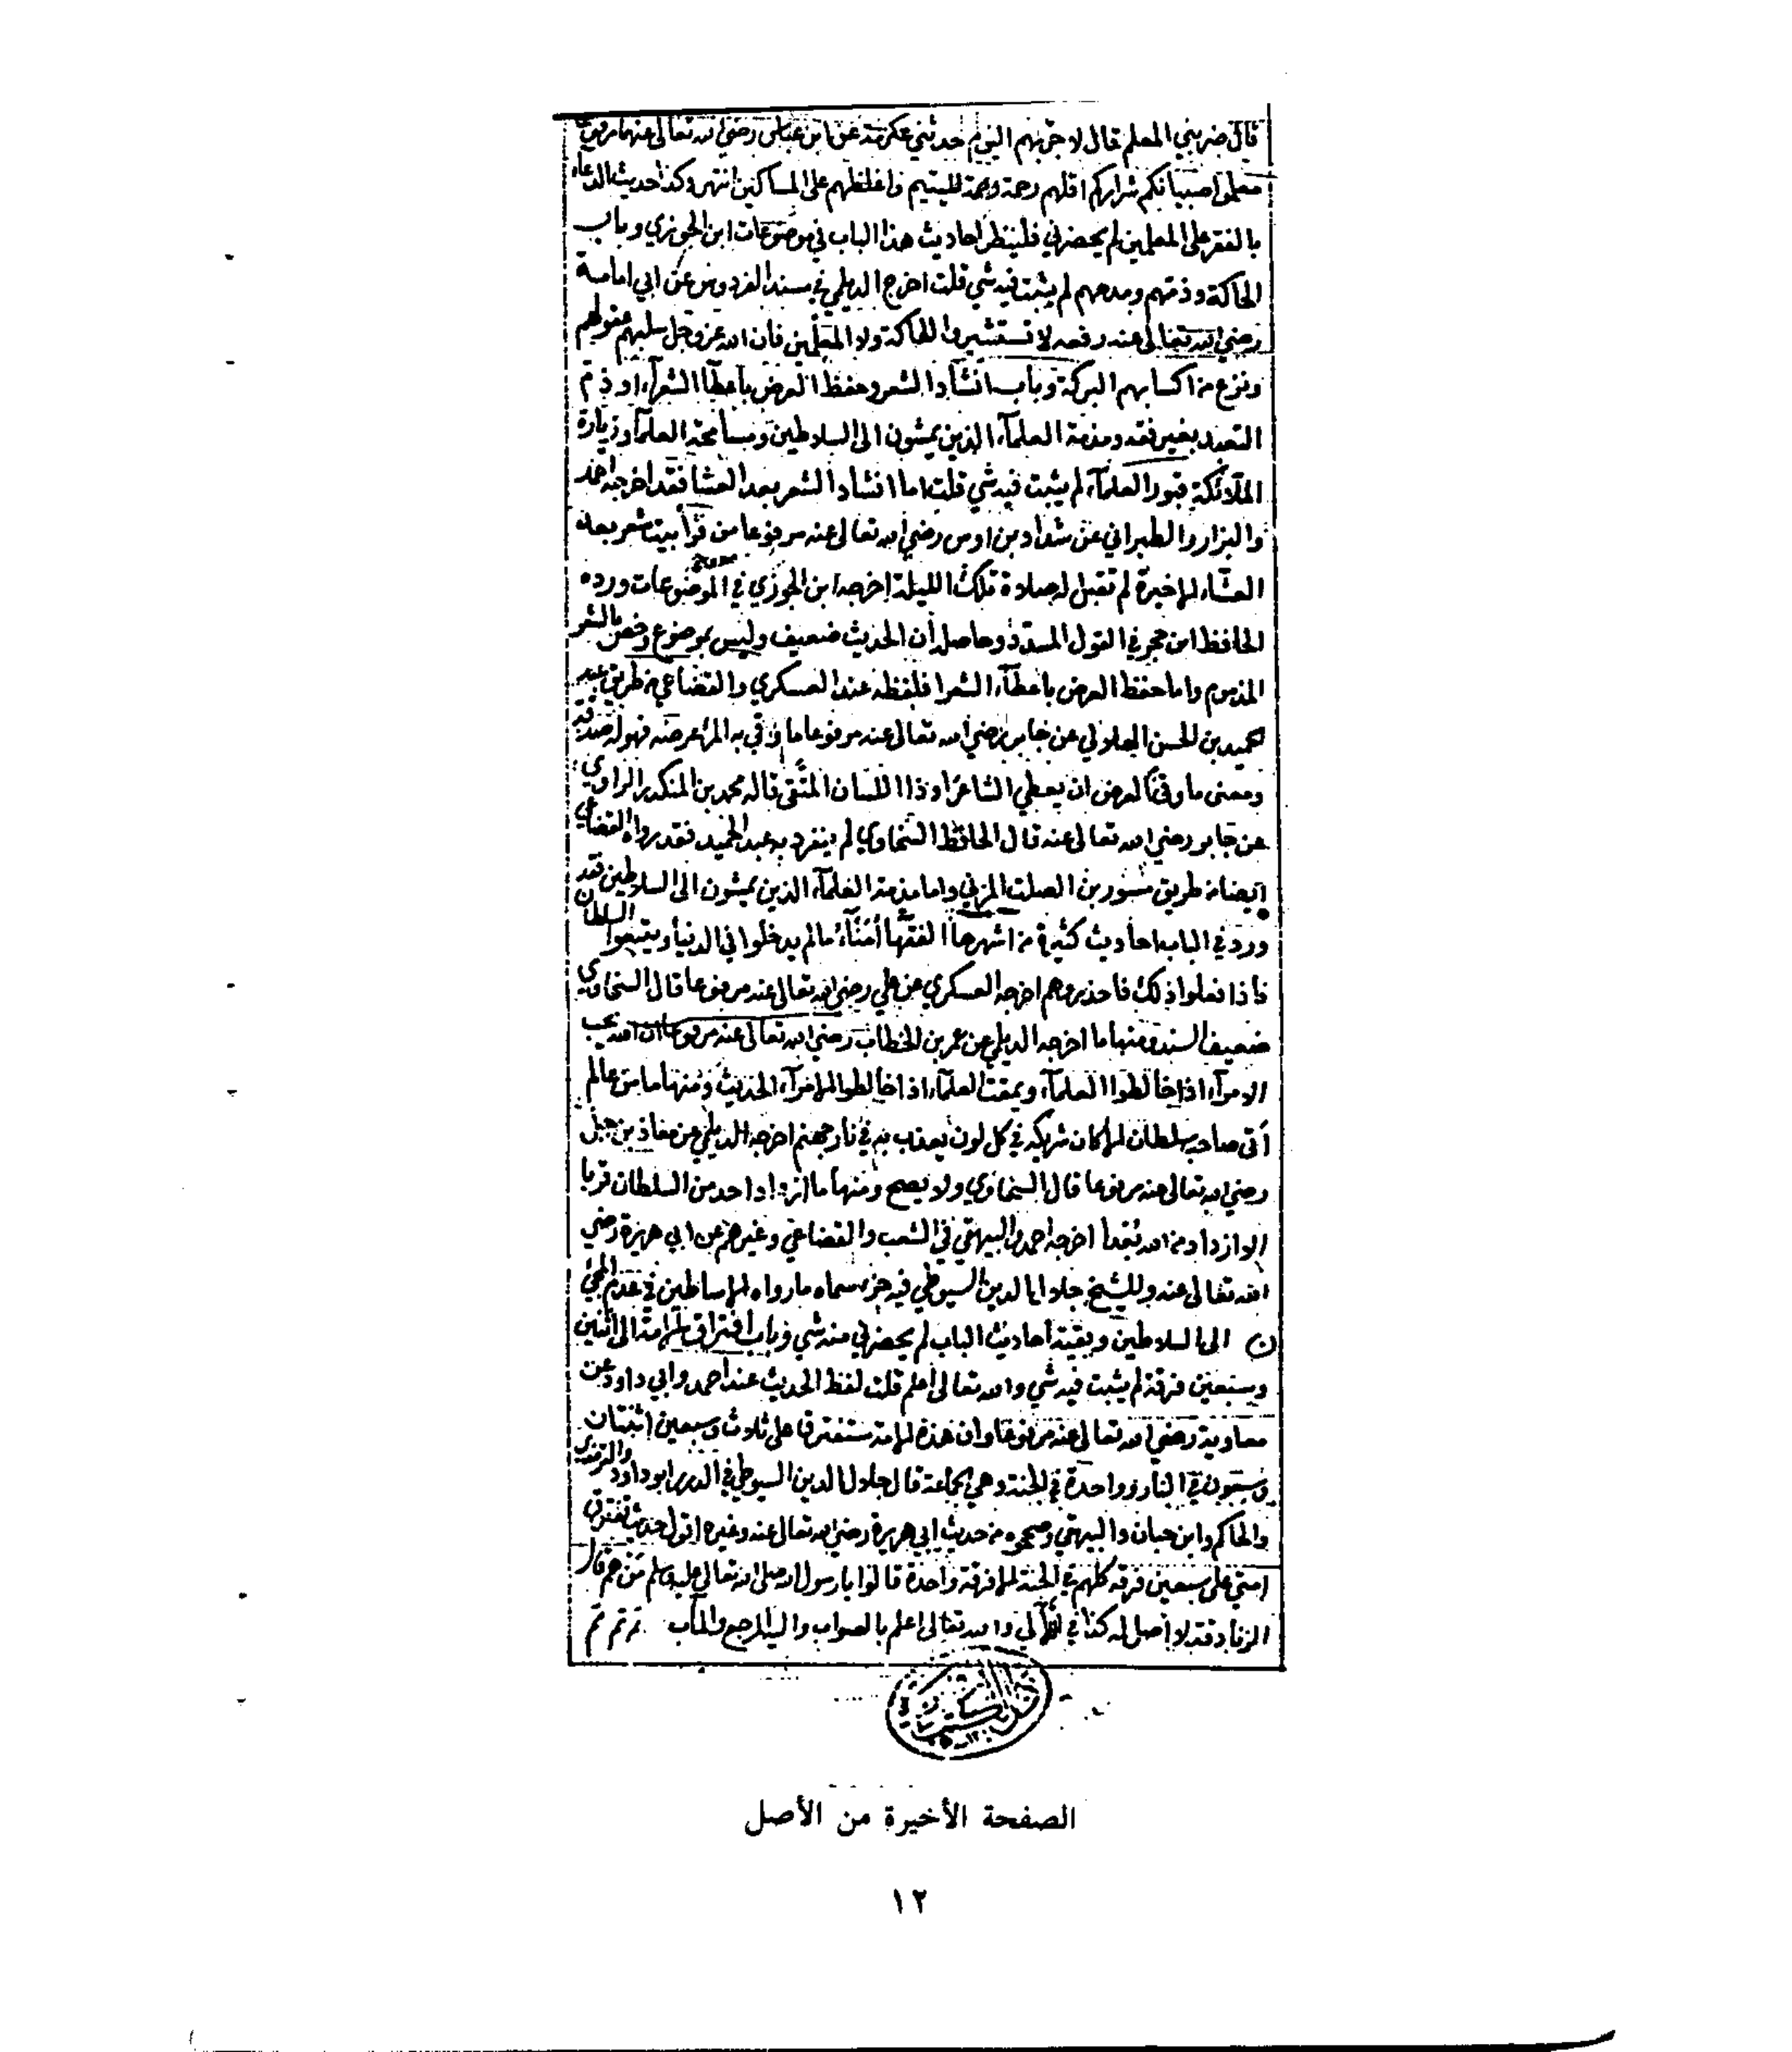 قال ضربني المعلم قال لاخزينهم اليوم حدثني عكرمة عن ابن عباس رضي الله تعالى عنهما مرفوعا
معلموا صبيانكم شراركم اقلهم رحمة لليتيم واغلظهم على المساكين انتهى وكذا حديث الدعاء
بالفقر على المعلمين لم يحضرني فلينظر احاديث هذا الباب في موضوعات ابن الجوزي وباب
الحاكة وذمهم ومدحهم لم يثبت فيه شي قلت اخرج الديلمي في مسند الفردوس عن ابي امامة
رضي الله تعالى عنه رفعه لا تستشيروا الحاكة ولا المعلمين فان الله عز وجل سلبهم عقولهم
ونزع من اكسابهم البركة وباب انشاد الشعر وحفظ العرض باعطآء الشعرآء او ذم
التعبد بغير فقه ومذمة العلمآء الذين يمشون الى السلاطين ومسامحة العلمآ وزيارة
الملائكة قبور العلمآء لم يثبت فيه شي قلت اما انشاد الشعر بعد العشا فقد اخرجه احمد
والبزار والطبراني عن شداد بن اوس رضي الله تعالى عنه مرفوعا من قرأ بيت شعر بعد
العشاء الاخيرة لم تقبل له صلاة تلك الليلة اخرجه ابن الجوزي في الموضوعات ورده
الحافظ ابن حجر في القول المسدد وحاصله أن الحديث ضعيف وليس بموضوع وخص بالشعر
المذموم واما حفظ العرض باعطآء الشعرا فلفظه عند العسكري والقضاعي من طريق عبد
الحميد بن الحسن الهلالي عن جابر رضي الله تعالى عنه مرفوعا ما وقي به المرء عرضه فهو له صدقة
ومعنى ما وقي العرض ان يعطي الشاعر او ذا اللسان المتقى قاله محمد بن المنكدر الراوي
عن جابر رضي الله تعالى عنه قال الحافظ السخاوي لم ينفرد به عبد الحميد فقد رواه القضاعي
ايضا من طريق مسور بن الصلت المزني واما مذمة العلمآء الذين يمشون الى السلاطين فقد
ورد في الباب احاديث كثيرة من اشهرها الفقهآ أمنآء ما لم يدخلوا في الدنيا ويتبعوا السلطان
فاذا فعلوا ذلك فاحذروهم اخرجه العسكري عن علي رضي الله تعالى عنه مرفوعا قال السخاوي
ضعيف السند ومنها ما اخرجه الديلمي عن عمر بن الخطاب رضي الله تعالى عنه مرفوعا ان الله يحب
الامرآء اذا خالطوا العلمآء ويمقت العلمآء اذا خالطوا الامرآء الحديث ومنها ما من عالم
أتى صاحب سلطان الا كان شريكه في كل لون يعذب به في نار جهنم اخرجه الديلمي عن معاذ بن جبل
رضي الله تعالى عنه مرفوعا قال السخاوي ولا يصح ومنها ما ازداد احد من السلطان قربا
الا ازداد من الله بعدا اخرجه احمد والبيهقي في الشعب والقضاعي وغيرهم عن ابي هريرة رضي
الله تعالى عنه وللشيخ جلال الدين السيوطي فيه جزء سماه ما رواه الاساطين في عدم المجئ
الى السلاطين وبقية أحاديث الباب لم يحضرني منه شي وباب افتراق الامة الى اثنين
وسبعين فرقة لم يثبت فيه شي والله تعالى أعلم قلت لفظ الحديث عند احمد وابي داود عن
معاوية رضي الله تعالى عنه مرفوعا وان هذه الامة ستفترق على ثلاث وسبعين اثنتان
وسبعون في النار وواحدة في الجنة وهي الجماعة قال جلال الدين السيوطي في الدرر ابو داود والترمذي
والحاكم وابن حبان والبيهقي وصححوه من حديث ابي هريرة رضي الله تعالى عنه وغيره اقول حديث تفترق
امتي على سبعين فرقة كلهم في الجنة الا فرقة واحدة قالوا يا رسول الله صلى الله تعالى عليه وسلم من هم قال
الزنادقة لا أصل له كذا في اللآلي والله تعالى اعلم بالصواب واليه المرجع والمآب تم تم تم
الصفحة الأخيرة من الأصل
١٢